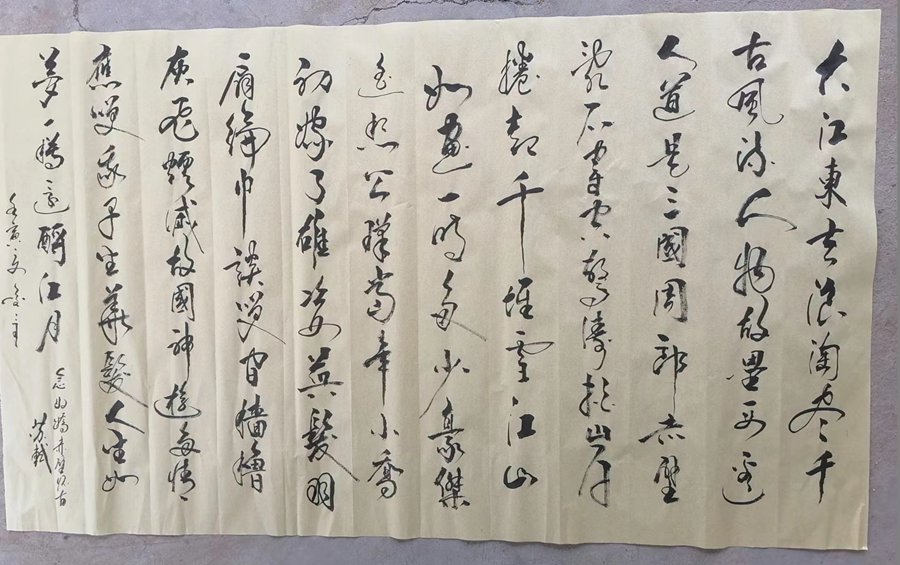 大江東去浪淘盡千
古風流人物故壘西邊
人道是三國周郎赤壁
亂石穿空驚濤拍岸
捲起千堆雪江山
如畫一時多少豪傑
遙想公瑾當年小喬
初嫁了雄姿英發羽
扇綸巾談笑間檣櫓
灰飛煙滅故國神遊多情
應笑我早生華髮人生如
夢一樽還酹江月
念奴嬌赤壁懷古
蘇軾
壬寅之夏